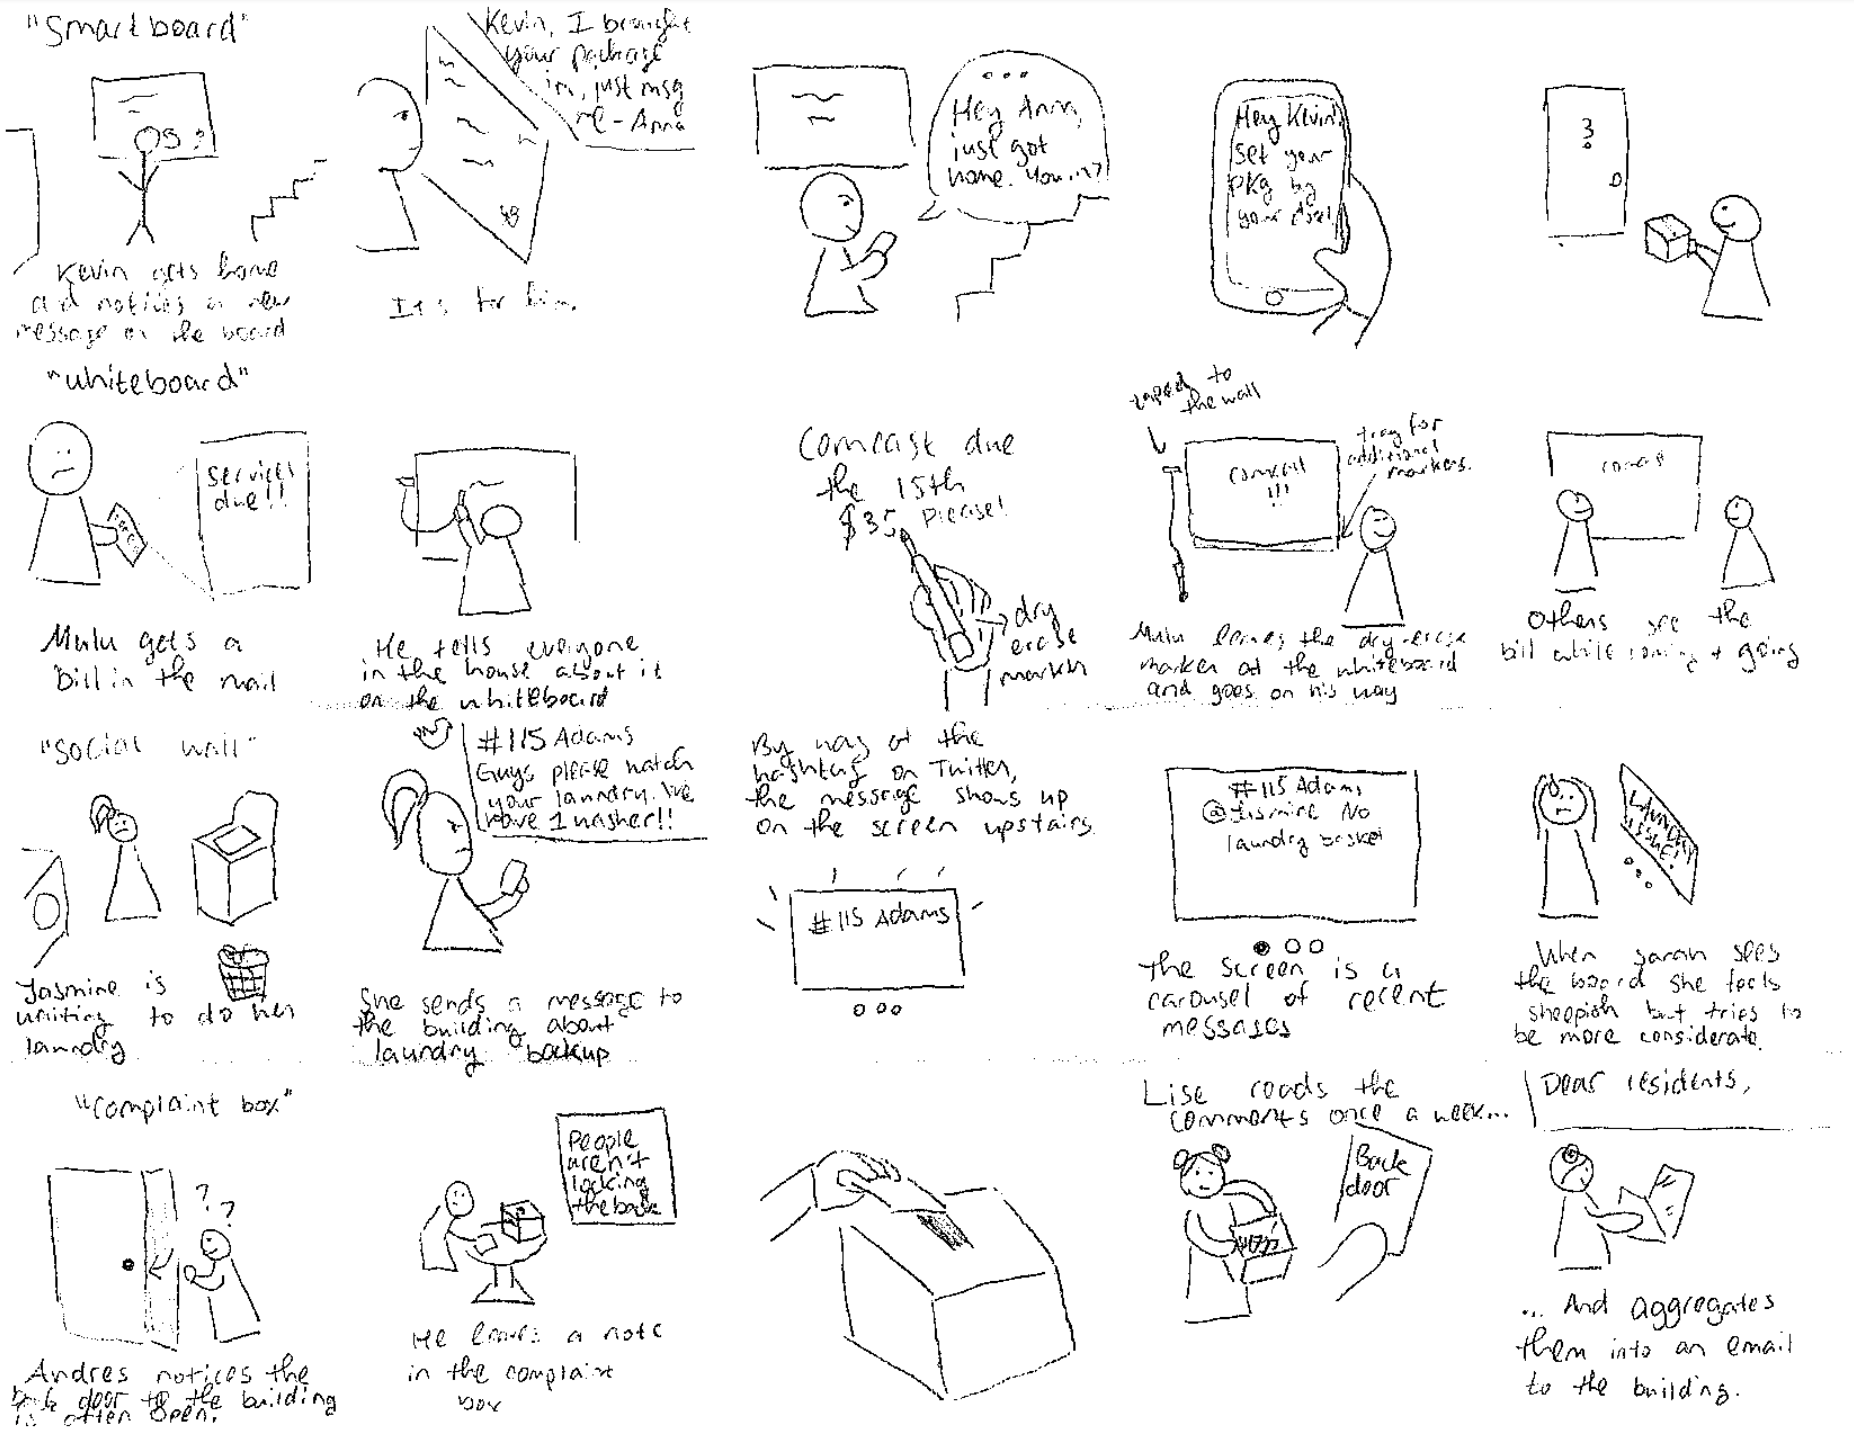 "Smartboard"
Kevin gets home
and notices a new
message on the board
Kevin, I brought
your package
in, just msg
me - Anna
It's for him.
...
Hey Anna,
just got
home. You in?
Hey Kevin!
set your
pkg by
your door!
3
"Whiteboard"
Services
due!!
Mulu gets a
bill in the mail
He tells everyone
in the house about it
on the whiteboard
Comcast due
the 15th
$35 please!
dry
erase
marker
taped to
the wall
comcast
!!!
tray for
additional
markers.
Mulu leaves the dry-erase
marker at the whiteboard
and goes on his way
Others see the
bill while coming + going
"Social wall"
Jasmine is
waiting to do her
laundry
#115 Adams
Guys please watch
your laundry. We
have 1 washer!!
She sends a message to
the building about
laundry backup
By way of the
hashtag on Twitter,
the message shows up
on the screen upstairs
#115 Adams
#115 Adams
@Jasmine No
laundry basket
the screen is a
carousel of recent
messages
LAUNDRY
ISSUE!
When Sarah sees
the board she feels
sheepish but tries to
be more considerate.
"Complaint box"
? ?
Andres notices the
back door to the building
is often open.
People
aren't
locking
the back
He leaves a note
in the complaint
box
Lise reads the
comments once a week...
Back
door
Dear residents,
... And aggregates
them into an email
to the building.